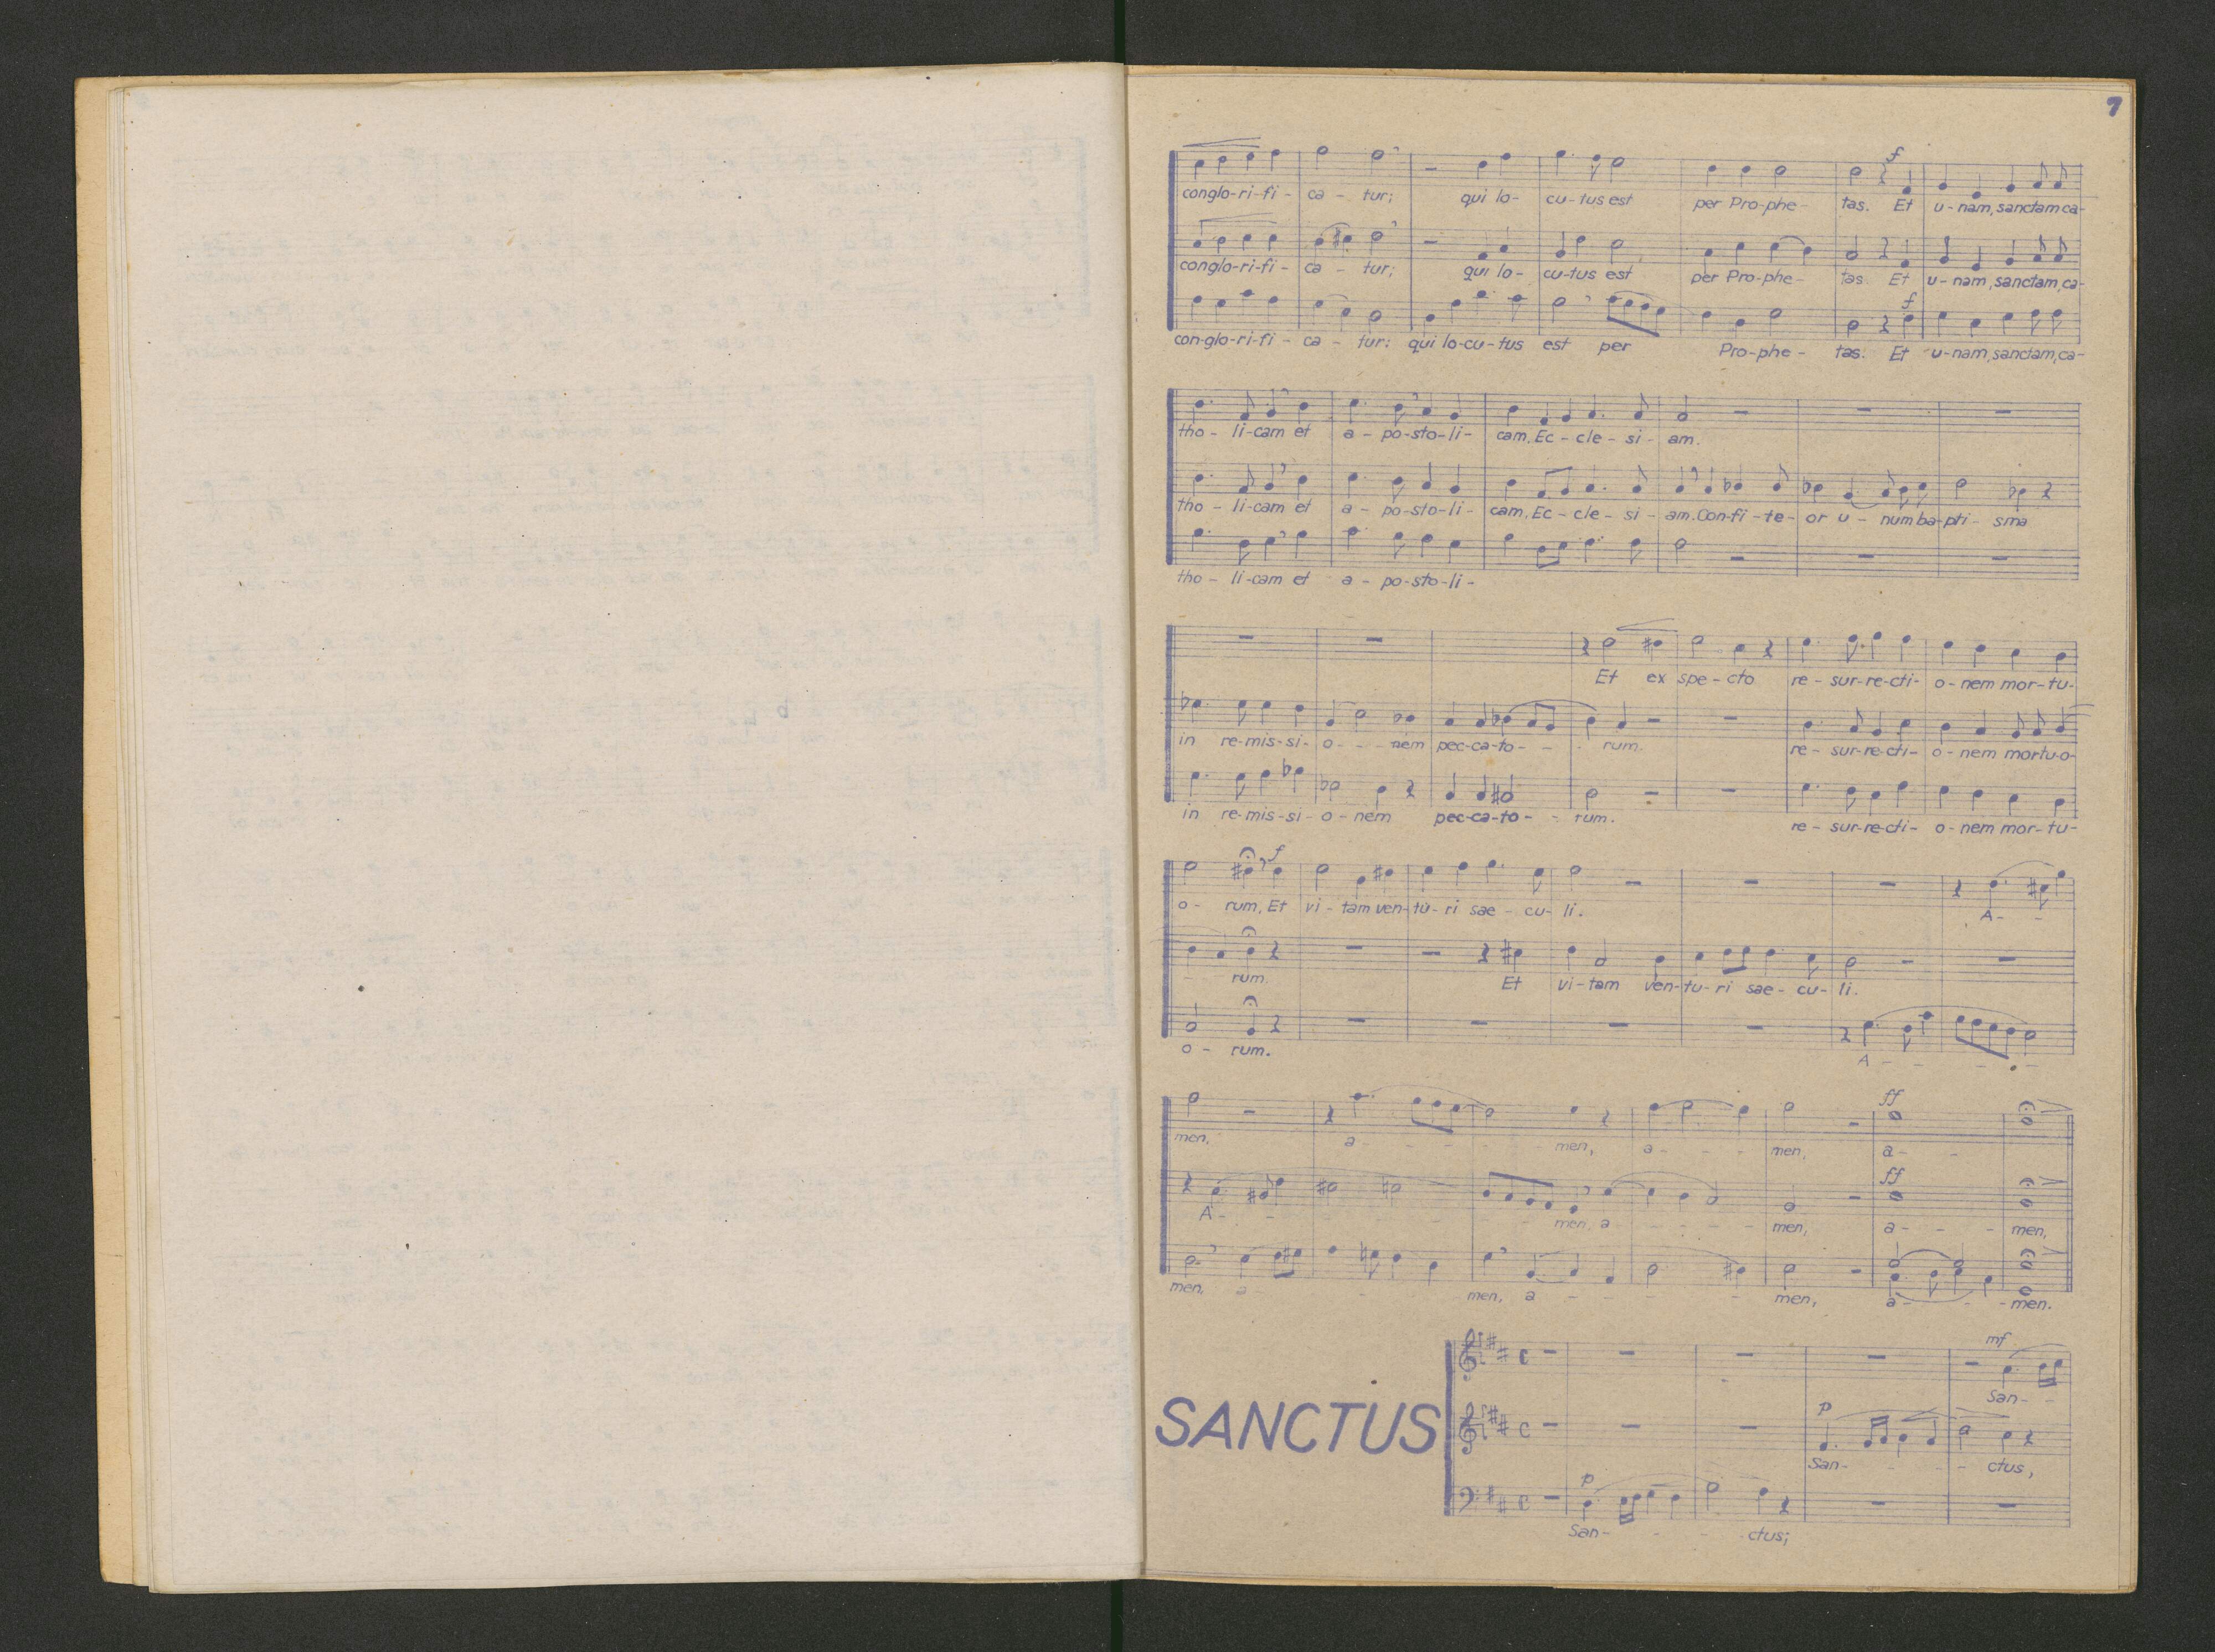 7
f
conglo-ri-fi- ca - tur; qui lo- cu-tus est per Pro-phe- tas. Et u-nam, sanctam ca-
conglo-ri-fi- ca - tur; qui lo- cu-tus est per Pro-phe- tas Et u-nam, sanctam, ca-
f
con-glo-ri-fi- ca - tur: qui lo-cu-tus est per Pro-phe- tas. Et u-nam, sanctam, ca-
tho- li-cam et a-po-sto-li- cam, Ec-cle-si- am.
tho- li-cam et a-po-sto-li- cam, Ec-cle-si- am. Con-fi-te- or u- num ba-pti- sma
tho- li-cam et a-po-sto-li-
Et ex spe-cto re-sur-re-cti- o-nem mor-tu-
in re-mis-si- o - - nem pec-ca-to- - - rum. re-sur-re-cti- o-nem mortu-o-
in re-mis-si- o-nem pec-ca-to- - rum. re-sur-re-cti- o-nem mor-tu-
f
o- rum, Et vi-tam ven-tu-ri sae-cu-li. A- -
- rum. Et vi-tam ven-tu-ri sae-cu-li.
o- rum. A - - - -
ff
men, a - - - - men, a - - - men, a - -
ff
A- - - - - - men, a - - - - men, a - - - men,
men, a - - men, a - - - men, a - - - men.
mf
San- -
SANCTUS
p
San- - - - ctus,
p
San- - - - ctus;